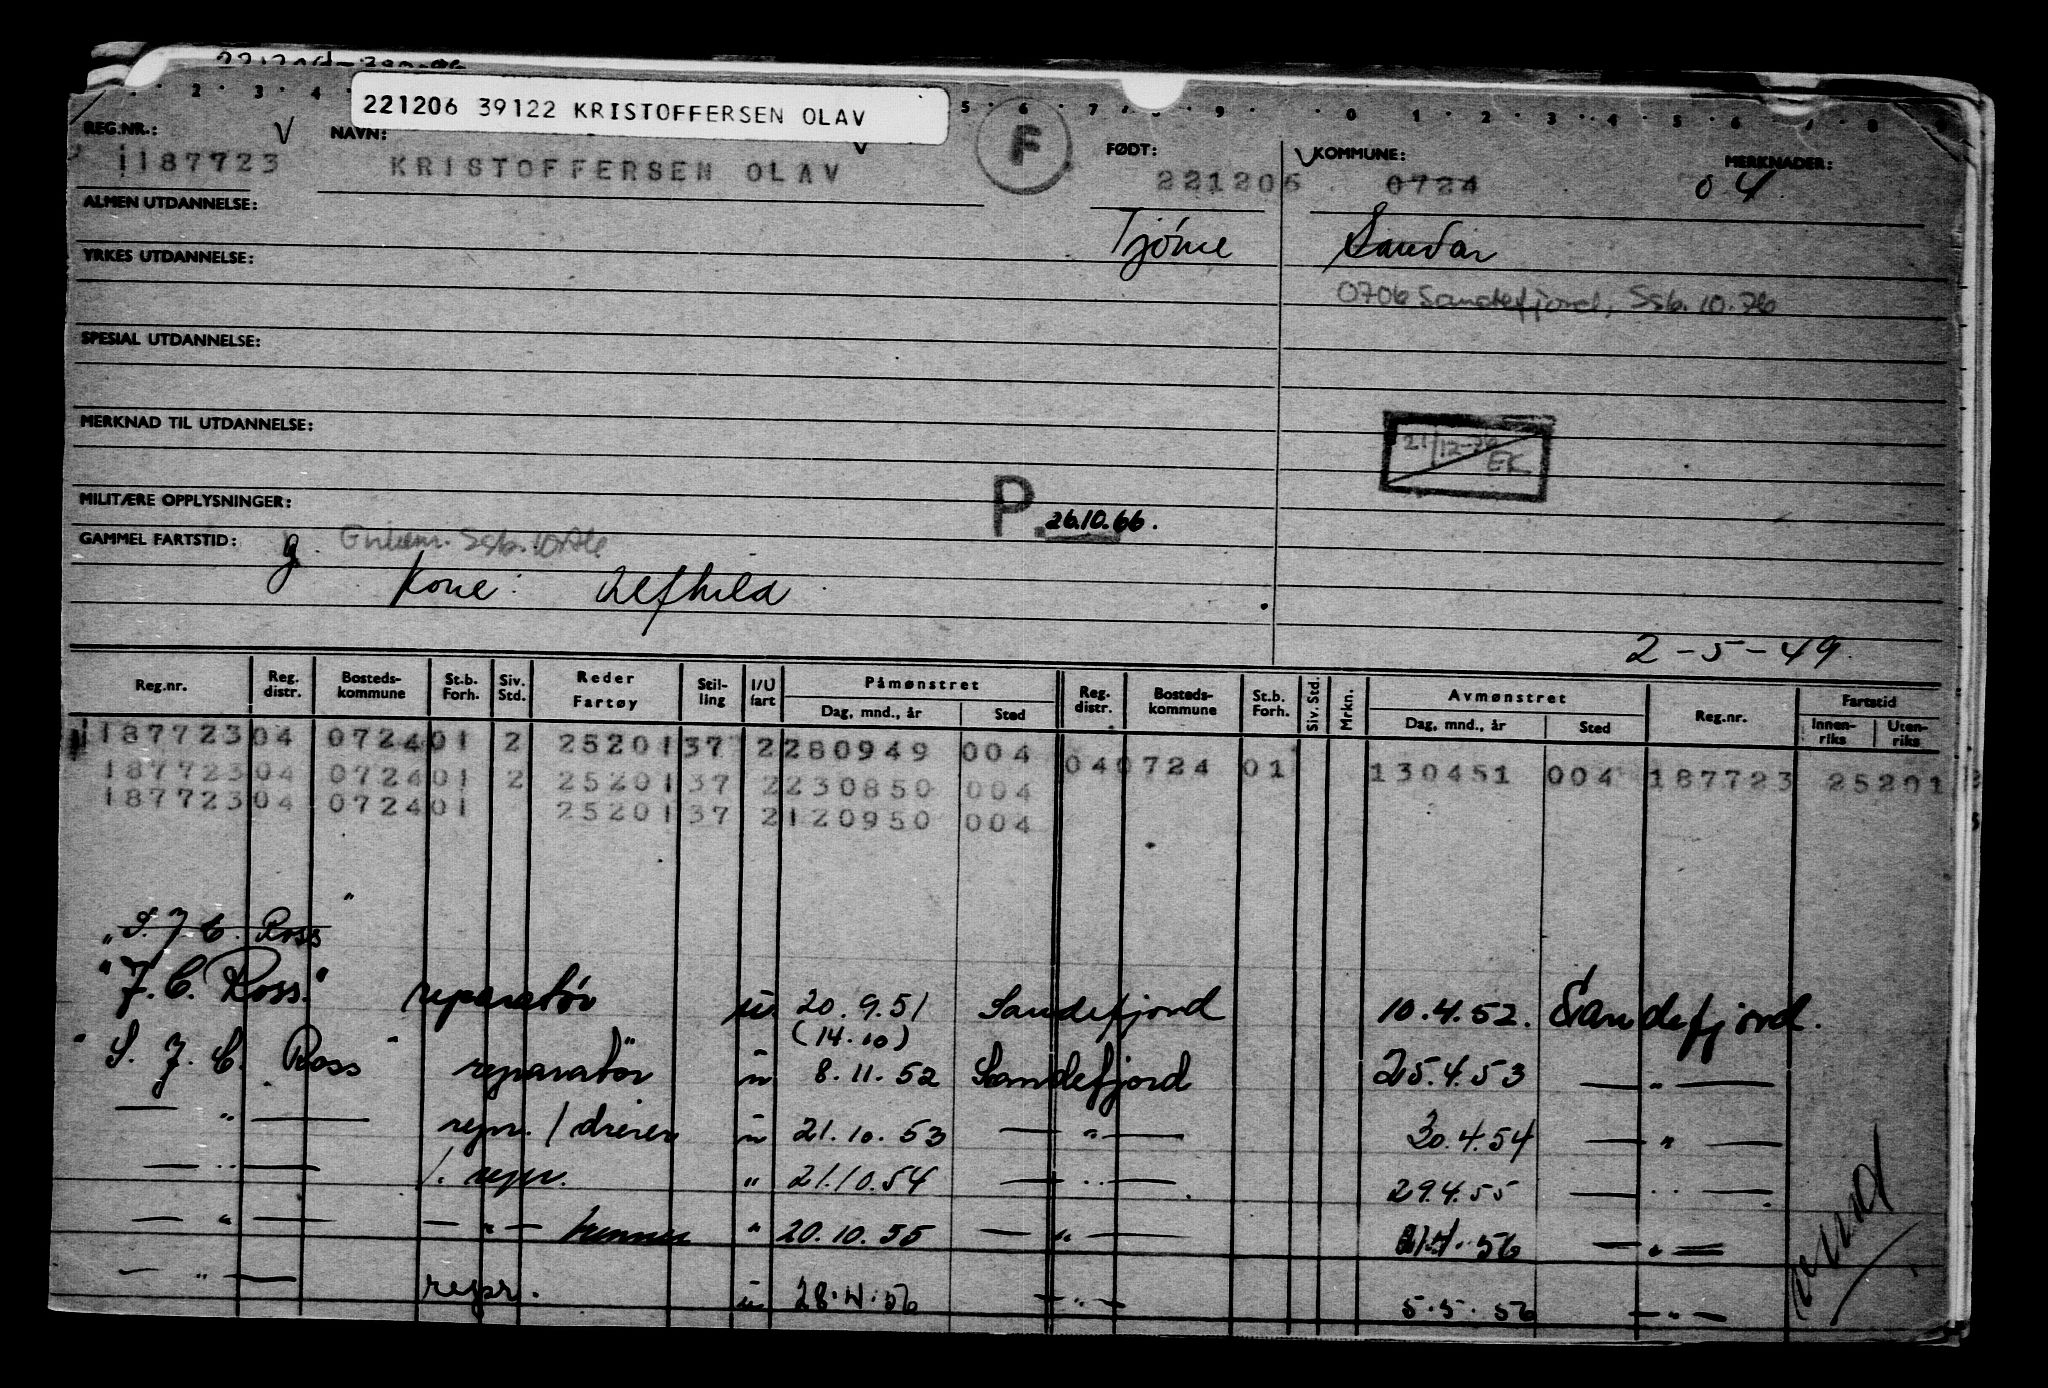 221206 39122 KRISTOFFERSEN OLAV
REG.NR.: NAVN: FØDT: KOMMUNE: MERKNADER:
187723 KRISTOFFERSEN OLAV F 221206 0724 04
ALMEN UTDANNELSE:
Tjøme Sandar
YRKES UTDANNELSE:
0706 Sandefjord, Ssb. 10.76
SPESIAL UTDANNELSE:
MERKNAD TIL UTDANNELSE:
21/12-76 EK
MILITÆRE OPPLYSNINGER:
P. 26.10.66.
GAMMEL FARTSTID: g.
Kone: Alfhild
2-5-49
Reg.nr. Reg. distr. Bosteds-kommune St.b. Forh. Siv. Std. Reder Fartøy Stil-ling I/U fart Påmønstret Dag, mnd., år Sted Reg. distr. Bosteds-kommune St.b. Forh. Siv. Std. Mrkn. Avmønstret Dag, mnd., år Sted Reg.nr. Fartstid Innen-riks Uten-riks
187723 04 0724 01 2 25201 37 2 280949 004 04 0724 01 130451 004 187723 25201
187723 04 0724 01 2 25201 37 2 230850 004
187723 04 0724 01 25201 37 2 120950 004
"S.J.C. Ross
"J.C. Ross." reparatør u 20.9.51 Sandefjord 10.4.52. Sandefjord.
(14.10)
"S.J.C. Ross" reparatør u 8.11.52 Sandefjord 25.4.53 — " —
— " — repr. / dreier u 21.10.53 — " — 30.4.54 — " —
— " — 1. repr. " 21.10.54 — " — 29.4.55 — " —
— " — — " — " 20.10.55 — " — 56 — " —
— " — repr. u 28.10.56 — " — 5.5.56 — " —